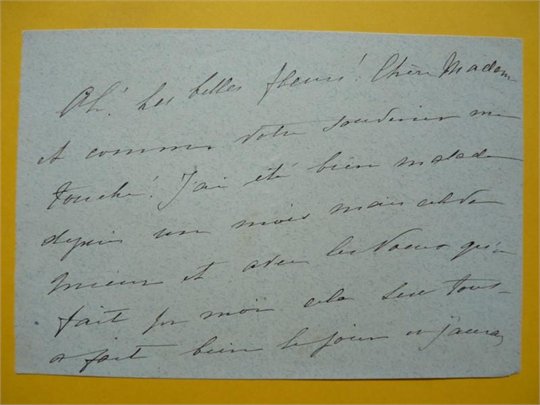 Ah! Les belles fleurs! Chère Madame
et comme votre souvenir me
touche! J'ai été bien malade
depuis un mois mais cela va
mieux et avec les voeux qu'on
fait pr moi cela sera tout-
à fait bien le jour où j'aurai